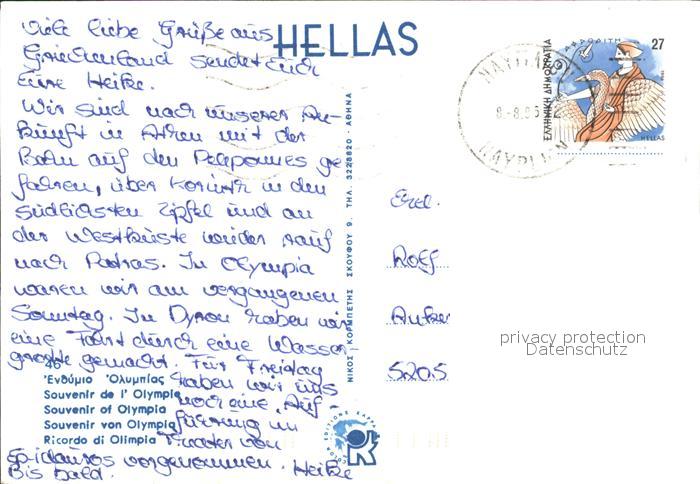 Viele liebe Grüße aus
Griechenland sendet Euch
Eure Heike.
Wir sind nach unserer An-
kunft in Athen mit der
Bahn auf den Peleponnes ge-
fahren, über Korinth in den
südlichsten Zipfel und an
der Westküste wieder rauf
nach Patras. In Olympia
waren wir am vergangenen
Sonntag. In Dyros haben wir
eine Fahrt durch eine Wasser-
grotte gemacht. Für Freitag
haben wir uns
noch eine Auf-
führung im
Theater von
Epidauros vorgenommen. Heike
Bis bald.
HELLAS
46
Ἐνθύμιο Ὀλυμπίας
Souvenir de l' Olympie
Souvenir of Olympia
Souvenir von Olympia
Ricordo di Olimpia
ΝΙΚΟΣ ΚΟΡΜΠΕΤΗΣ ΣΚΟΥΦΟΥ 9. ΤΗΛ. 3228820 - ΑΘΗΝΑ
ΑΦΡΟΔΙΤΗ
27
ΕΛΛΗΝΙΚΗ ΔΗΜΟΚΡΑΤΙΑ
HELLAS
Rolf
5205
privacy protection
Datenschutz